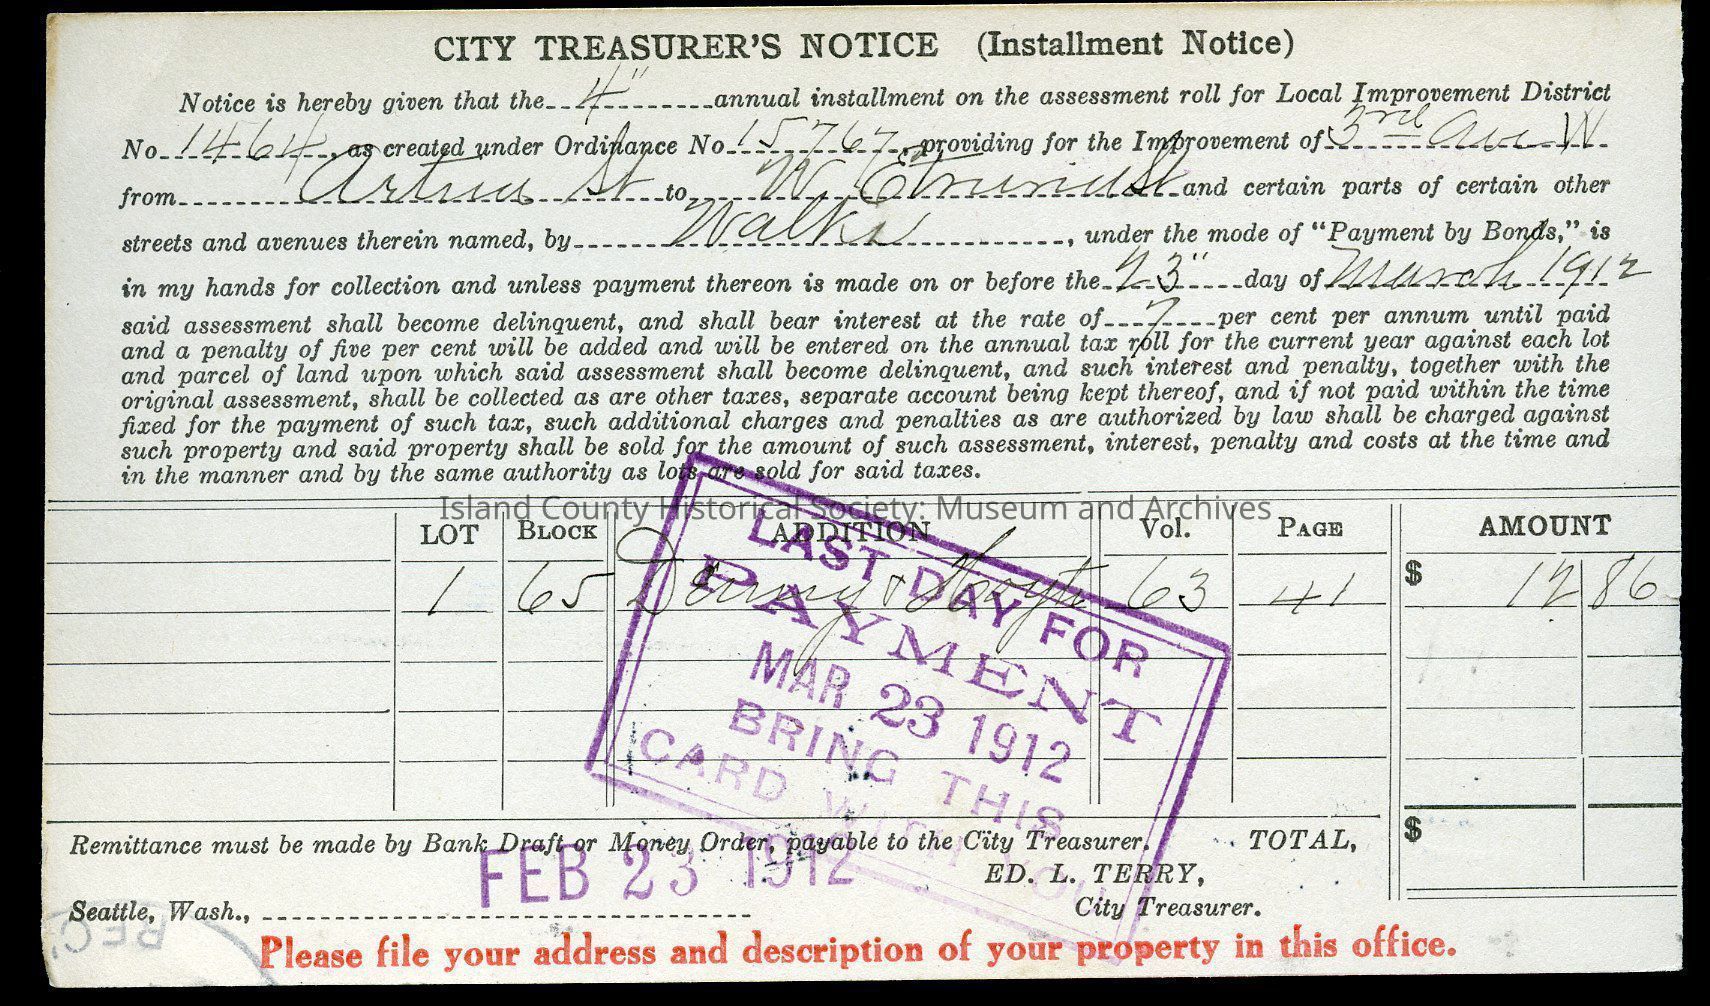 CITY TREASURER'S NOTICE (Installment Notice)
Notice is hereby given that the 4" annual installment on the assessment roll for Local Improvement District
No. 1464, as created under Ordinance No. 15767, providing for the Improvement of 3rd Ave W
from St to W. and certain parts of certain other
streets and avenues therein named, by Walks, under the mode of "Payment by Bonds," is
in my hands for collection and unless payment thereon is made on or before the 23" day of March 1912
said assessment shall become delinquent, and shall bear interest at the rate of 7 per cent per annum until paid
and a penalty of five per cent will be added and will be entered on the annual tax roll for the current year against each lot
and parcel of land upon which said assessment shall become delinquent, and such interest and penalty, together with the
original assessment, shall be collected as are other taxes, separate account being kept thereof, and if not paid within the time
fixed for the payment of such tax, such additional charges and penalties as are authorized by law shall be charged against
such property and said property shall be sold for the amount of such assessment, interest, penalty and costs at the time and
in the manner and by the same authority as lots are sold for said taxes.
Island County Historical Society: Museum and Archives
LOT BLOCK ADDITION Vol. PAGE AMOUNT
1 65 Denny & Hoyts 63 41 $ 12 86
LAST DAY FOR
PAYMENT
MAR 23 1912
BRING THIS
CARD WITH YOU
Remittance must be made by Bank Draft or Money Order, payable to the City Treasurer. TOTAL, $
FEB 23 1912
ED. L. TERRY,
Seattle, Wash., City Treasurer.
REC
Please file your address and description of your property in this office.